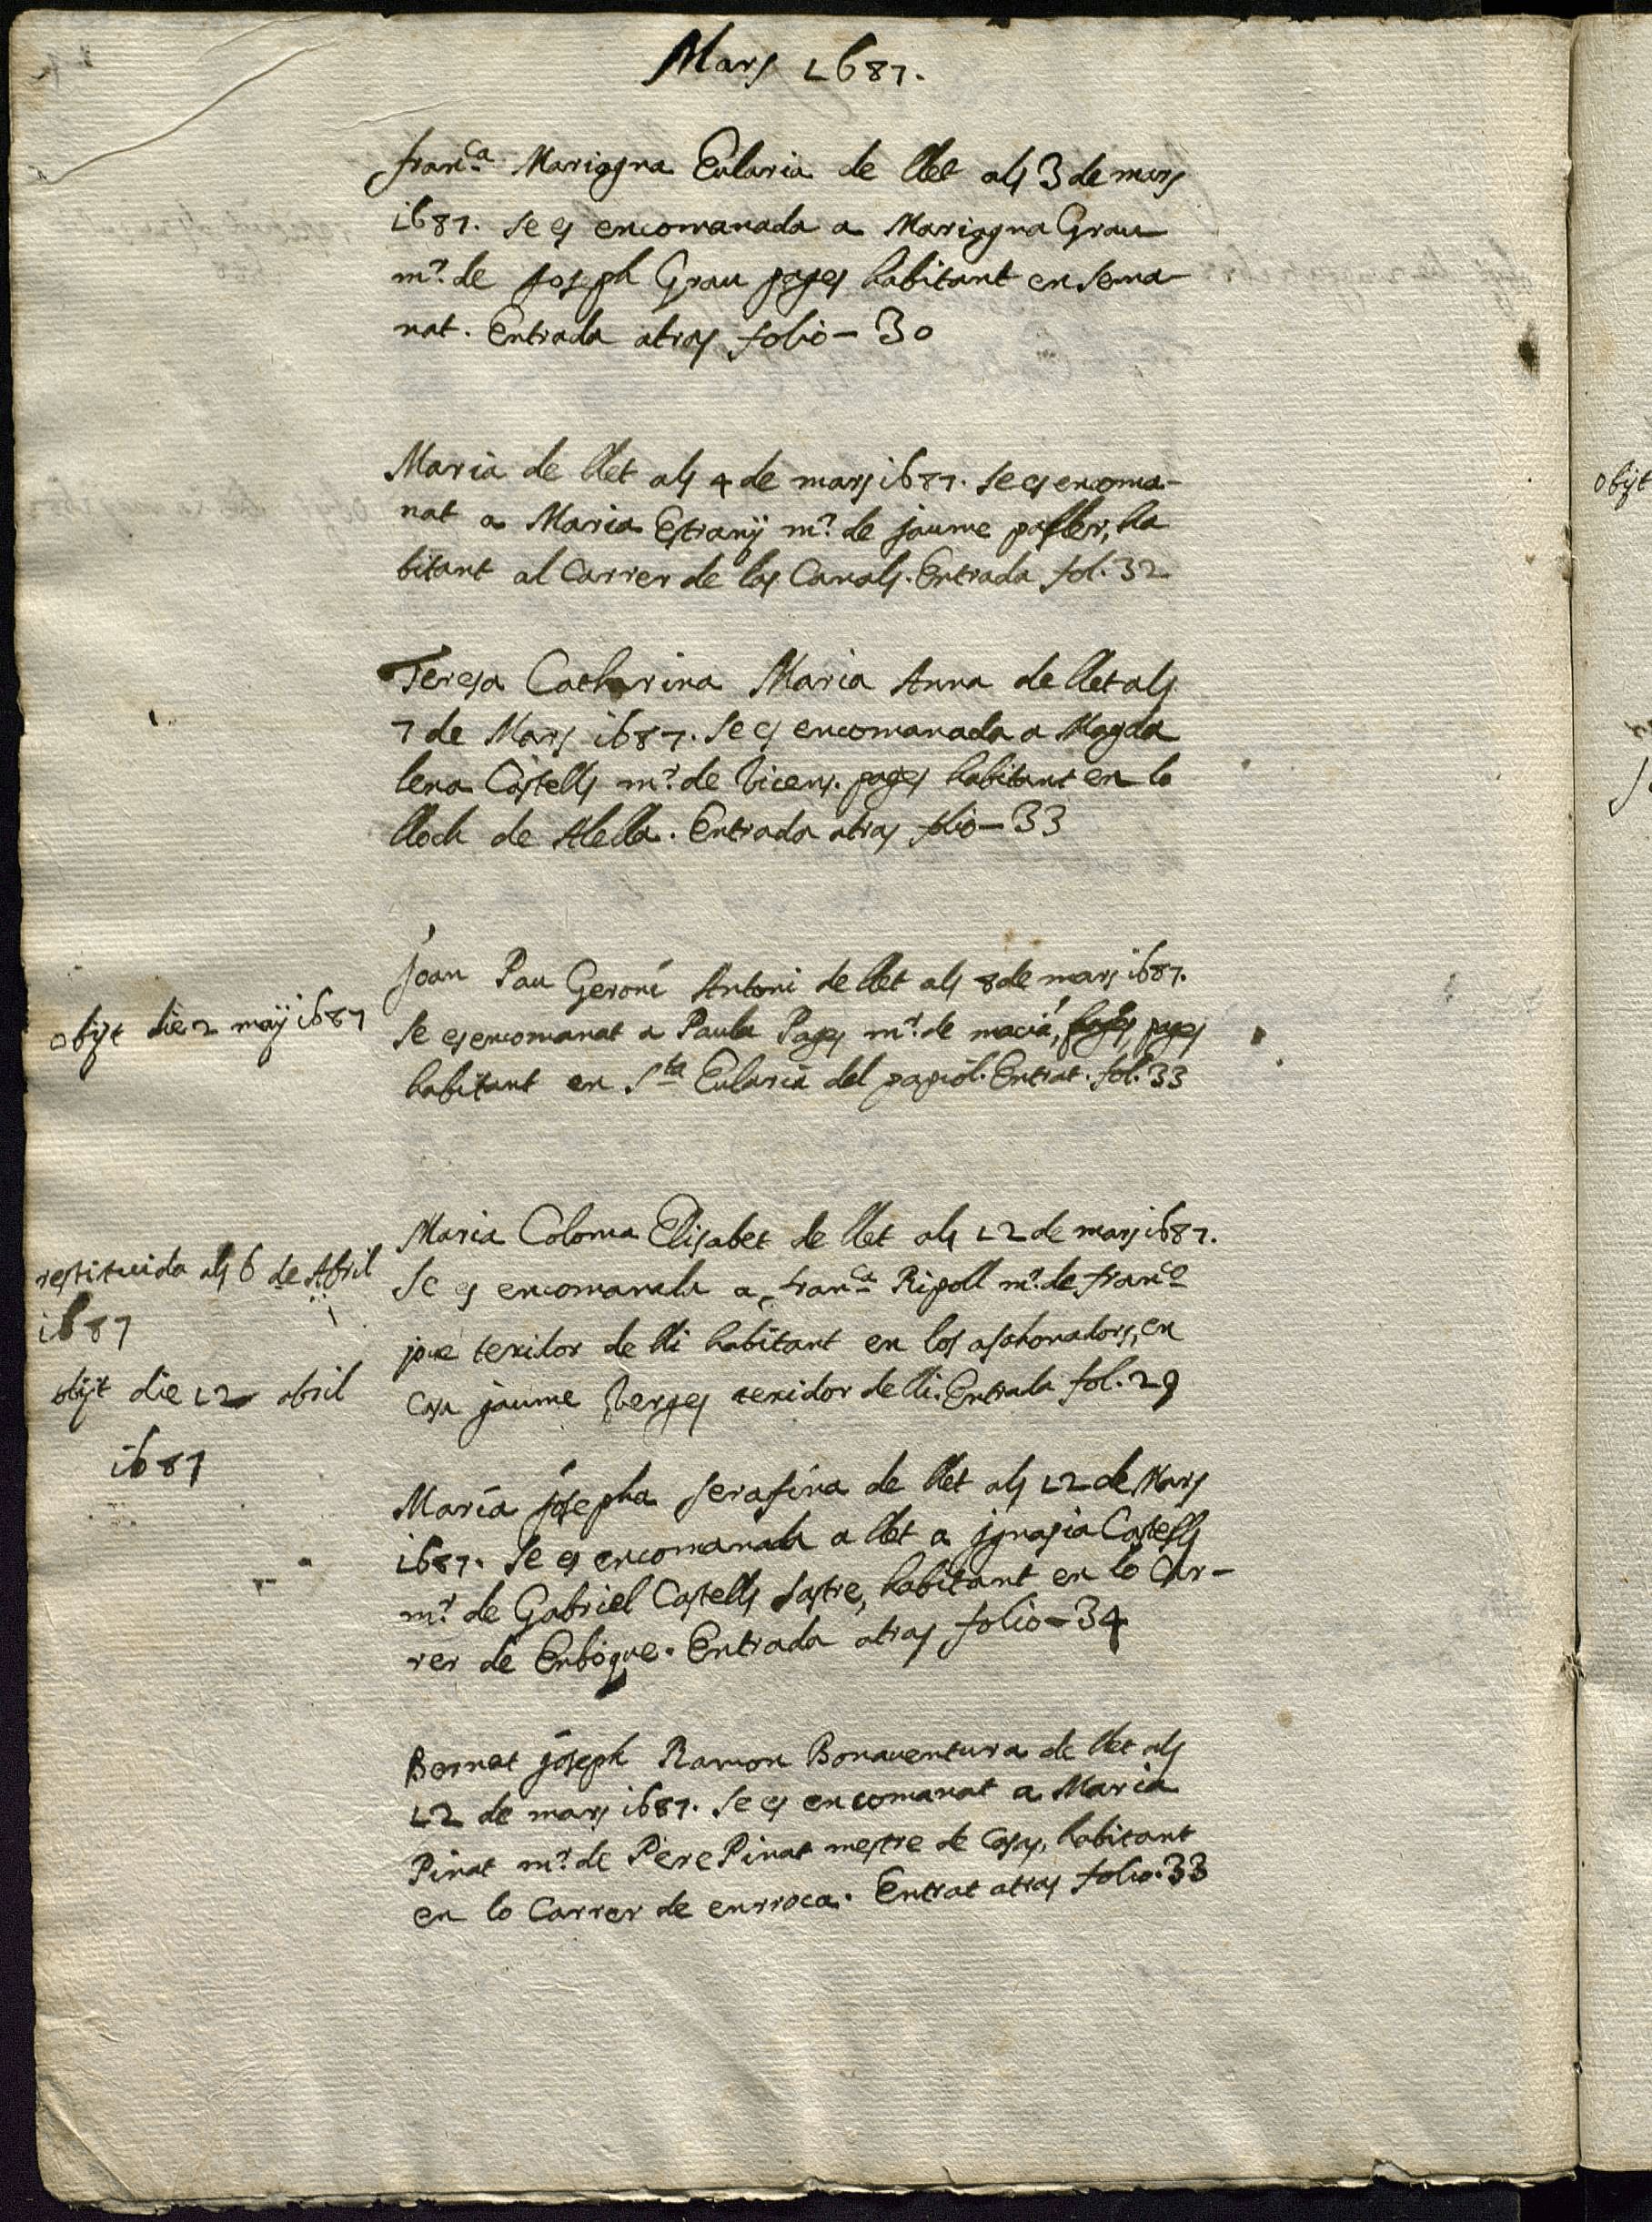 Mars 1687.
fran.ca Mariagna Eularia de llet als 3 de mars
1687. se es encomanada a Mariagna Grau
mr. de Joseph Grau pages habitant en sema-
nat. Entrada atras folio - 30
Maria de llet als 4 de mars 1687. se es encoma-
nat a Maria Estrany mr. de jaume paller, ha
bitant al Carrer de las Canals. Entrada fol. 32
Teresa Catharina Maria Anna de llet als
7 de Mars 1687. se es encomanada a Magda
lena Castells mr. de Vicens. pages habitant en lo
lloch de Alella. Entrada atras folio - 33
Joan Pau Geroni Antoni de llet als 8 de mars 1687.
obijt die 2 maij 1687
se es encomanat a Paula Pages mr. de macia, pages, pages
habitant en Sta Eularia del papiol. Entrat. fol. 33
Maria Coloma Elisabet de llet als 12 de mars 1687.
restituida als 6 de Abril
1687
se es encomanada a fran.ca Ripoll mr. de fran.co
texidor de lli habitant en los asahonadors, en
obijt die 12 abril
1687
casa jaume Verges texidor de lli. Entrada fol. 29
Maria josepha serafina de llet als 12 de Mars
1687. se es encomanada a llet a jgnasia Castells
mr. de Gabriel Castells sastre, habitant en lo Car-
rer de Enbogue. Entrada atras folio - 34
Bernat joseph Ramon Bonaventura de llet als
12 de mars 1687. se es encomanat a Maria
Pinat mr. de Pere Pinat mestre de casas, habitant
en lo Carrer de enrroca. Entrat atras folio. 33
obijt